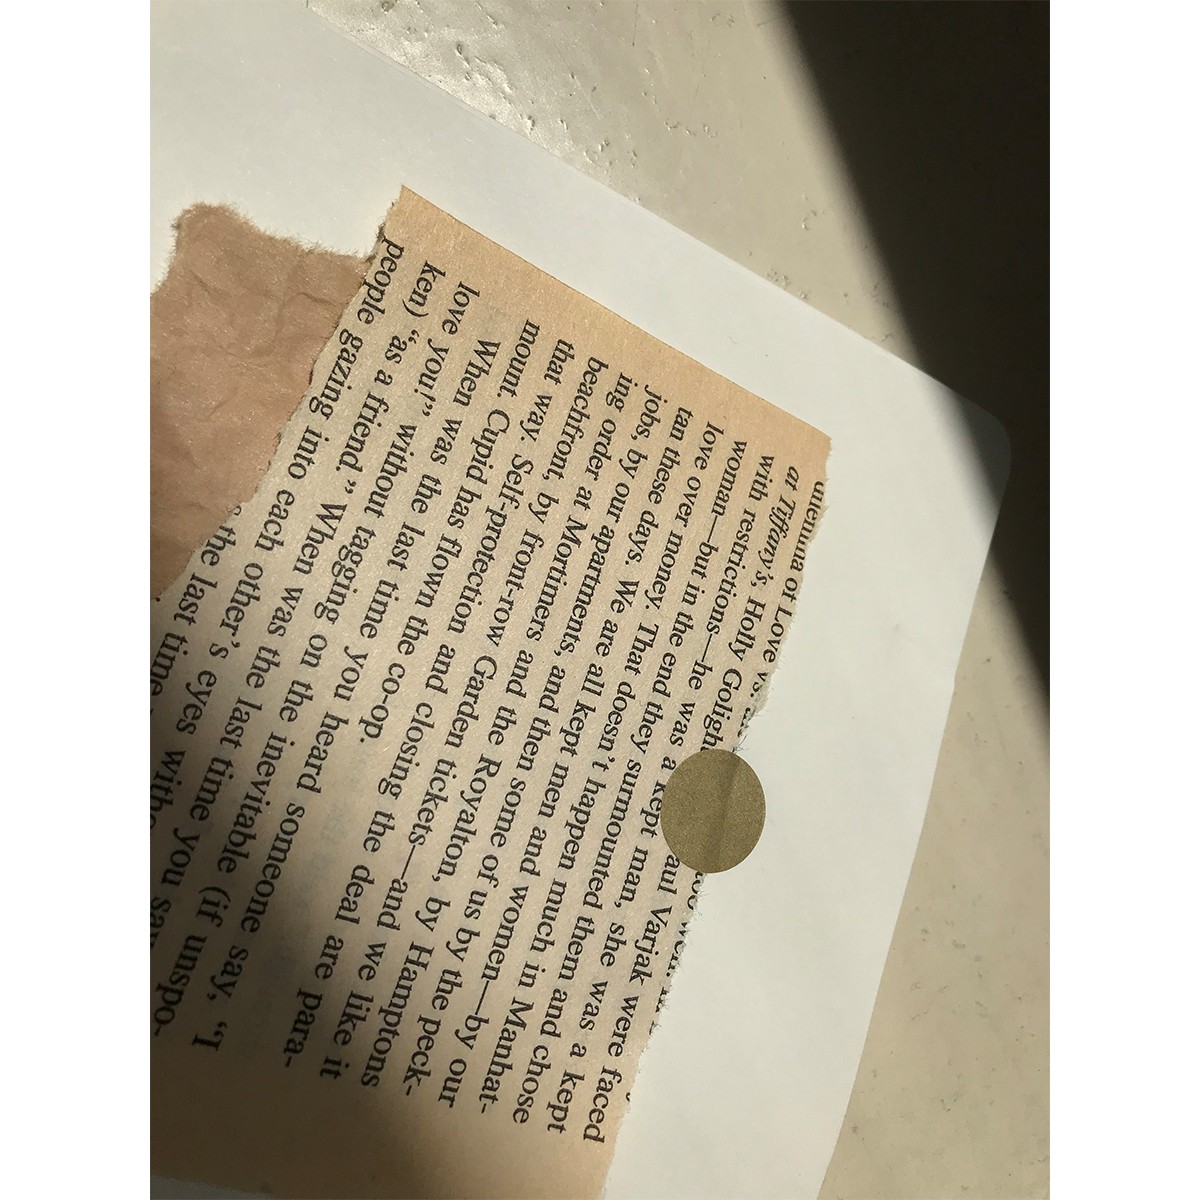 dilemma of Love vs.
at Tiffany's, Holly Goligh aul Varjak were faced
with restrictions—he was a kept man, she was a kept
woman—but in the end they surmounted them and chose
love over money. That doesn't happen much in Manhat-
tan these days. We are all kept men and women—by our
jobs, by our apartments, and then some of us by the peck-
ing order at Mortimers and the Royalton, by Hamptons
beachfront, by front-row Garden tickets—and we like it
that way. Self-protection and closing the deal are para-
mount. Cupid has flown the co-op.
When was the last time you heard someone say, “I
love you!” without tagging on the inevitable (if unspo-
ken) “as a friend.” When was the last time you saw
people gazing into each other's eyes witho
the last time